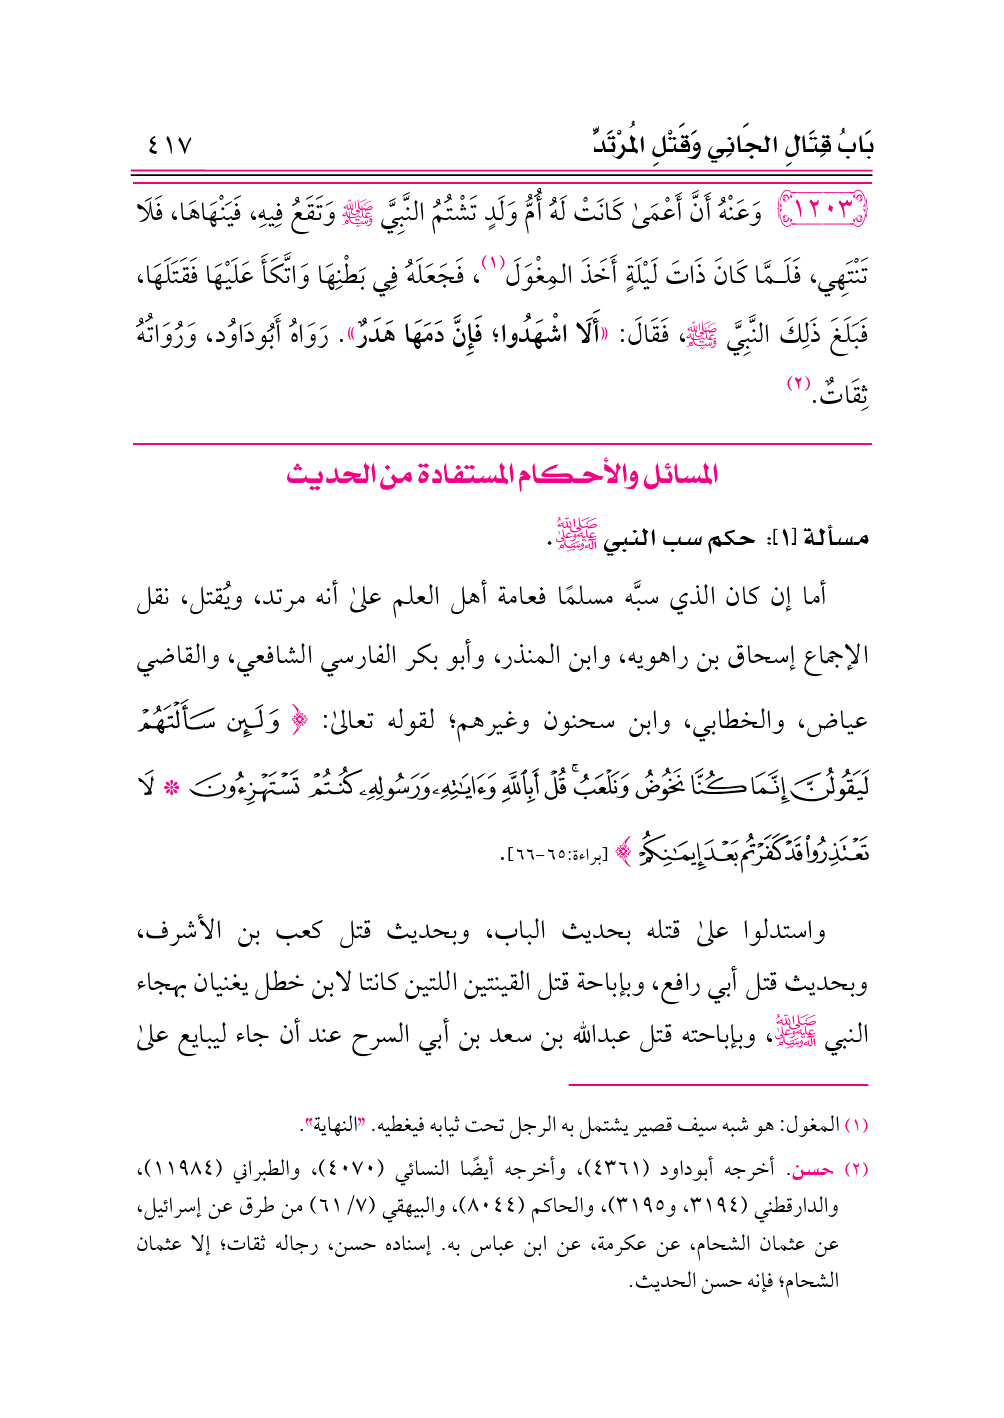 بَابُ قِتَالِ الجَانِي وَقَتْلِ المُرْتَدِّ ٤١٧
١٢٠٣ وَعَنْهُ أَنَّ أَعْمَىٰ كَانَتْ لَهُ أُمُّ وَلَدٍ تَشْتُمُ النَّبِيَّ ﷺ وَتَقَعُ فِيهِ، فَيَنْهَاهَا، فَلَا
تَنْتَهِي، فَلَـمَّا كَانَ ذَاتَ لَيْلَةٍ أَخَذَ المِغْوَلَ(١)، فَجَعَلَهُ فِي بَطْنِهَا وَاتَّكَأَ عَلَيْهَا فَقَتَلَهَا،
فَبَلَغَ ذَلِكَ النَّبِيَّ ﷺ، فَقَالَ: «أَلَا اشْهَدُوا؛ فَإِنَّ دَمَهَا هَدَرٌ». رَوَاهُ أَبُودَاوُد، وَرُوَاتُهُ
ثِقَاتٌ.(٢)
المسائل والأحكام المستفادة من الحديث
مسألة [١]: حكم سب النبي ﷺ.
أما إن كان الذي سبَّه مسلمًا فعامة أهل العلم علىٰ أنه مرتد، ويُقتل، نقل
الإجماع إسحاق بن راهويه، وابن المنذر، وأبو بكر الفارسي الشافعي، والقاضي
عياض، والخطابي، وابن سحنون وغيرهم؛ لقوله تعالىٰ: ﴿ وَلَئِن سَأَلْتَهُمْ
لَيَقُولُنَّ إِنَّمَا كُنَّا نَخُوضُ وَنَلْعَبُ ۚ قُلْ أَبِاللَّهِ وَءَايَٰتِهِۦ وَرَسُولِهِۦ كُنتُمْ تَسْتَهْزِءُونَ * لَا
تَعْتَذِرُوا۟ قَدْ كَفَرْتُم بَعْدَ إِيمَٰنِكُمْ ﴾ [براءة:٦٥-٦٦].
واستدلوا علىٰ قتله بحديث الباب، وبحديث قتل كعب بن الأشرف،
وبحديث قتل أبي رافع، وبإباحة قتل القينتين اللتين كانتا لابن خطل يغنيان بهجاء
النبي ﷺ، وبإباحته قتل عبدالله بن سعد بن أبي السرح عند أن جاء ليبايع علىٰ
(١) المغول: هو شبه سيف قصير يشتمل به الرجل تحت ثيابه فيغطيه. "النهاية".
(٢) حسن. أخرجه أبوداود (٤٣٦١)، وأخرجه أيضًا النسائي (٤٠٧٠)، والطبراني (١١٩٨٤)،
والدارقطني (٣١٩٤، و٣١٩٥)، والحاكم (٨٠٤٤)، والبيهقي (٧/ ٦١) من طرق عن إسرائيل،
عن عثمان الشحام، عن عكرمة، عن ابن عباس به. إسناده حسن، رجاله ثقات؛ إلا عثمان
الشحام؛ فإنه حسن الحديث.